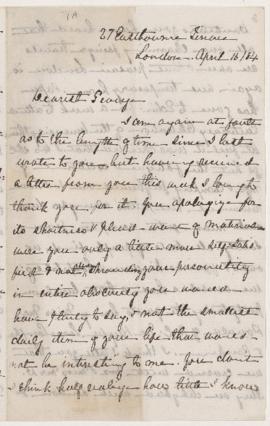 27 Eastbourne Terrace
London April 16/84
Dearest George
I am again at fault
as to the length of time since I last
wrote to you but having received
a letter from you this week I long to
thank you for it. You apologize for
its shortness & plead want of material
were you only a little more
& not your personality
in entire obscurity you would
have plenty to say, & not the smallest
daily item of your life that would
not be interesting to me. You don't
I think half realize how little I know